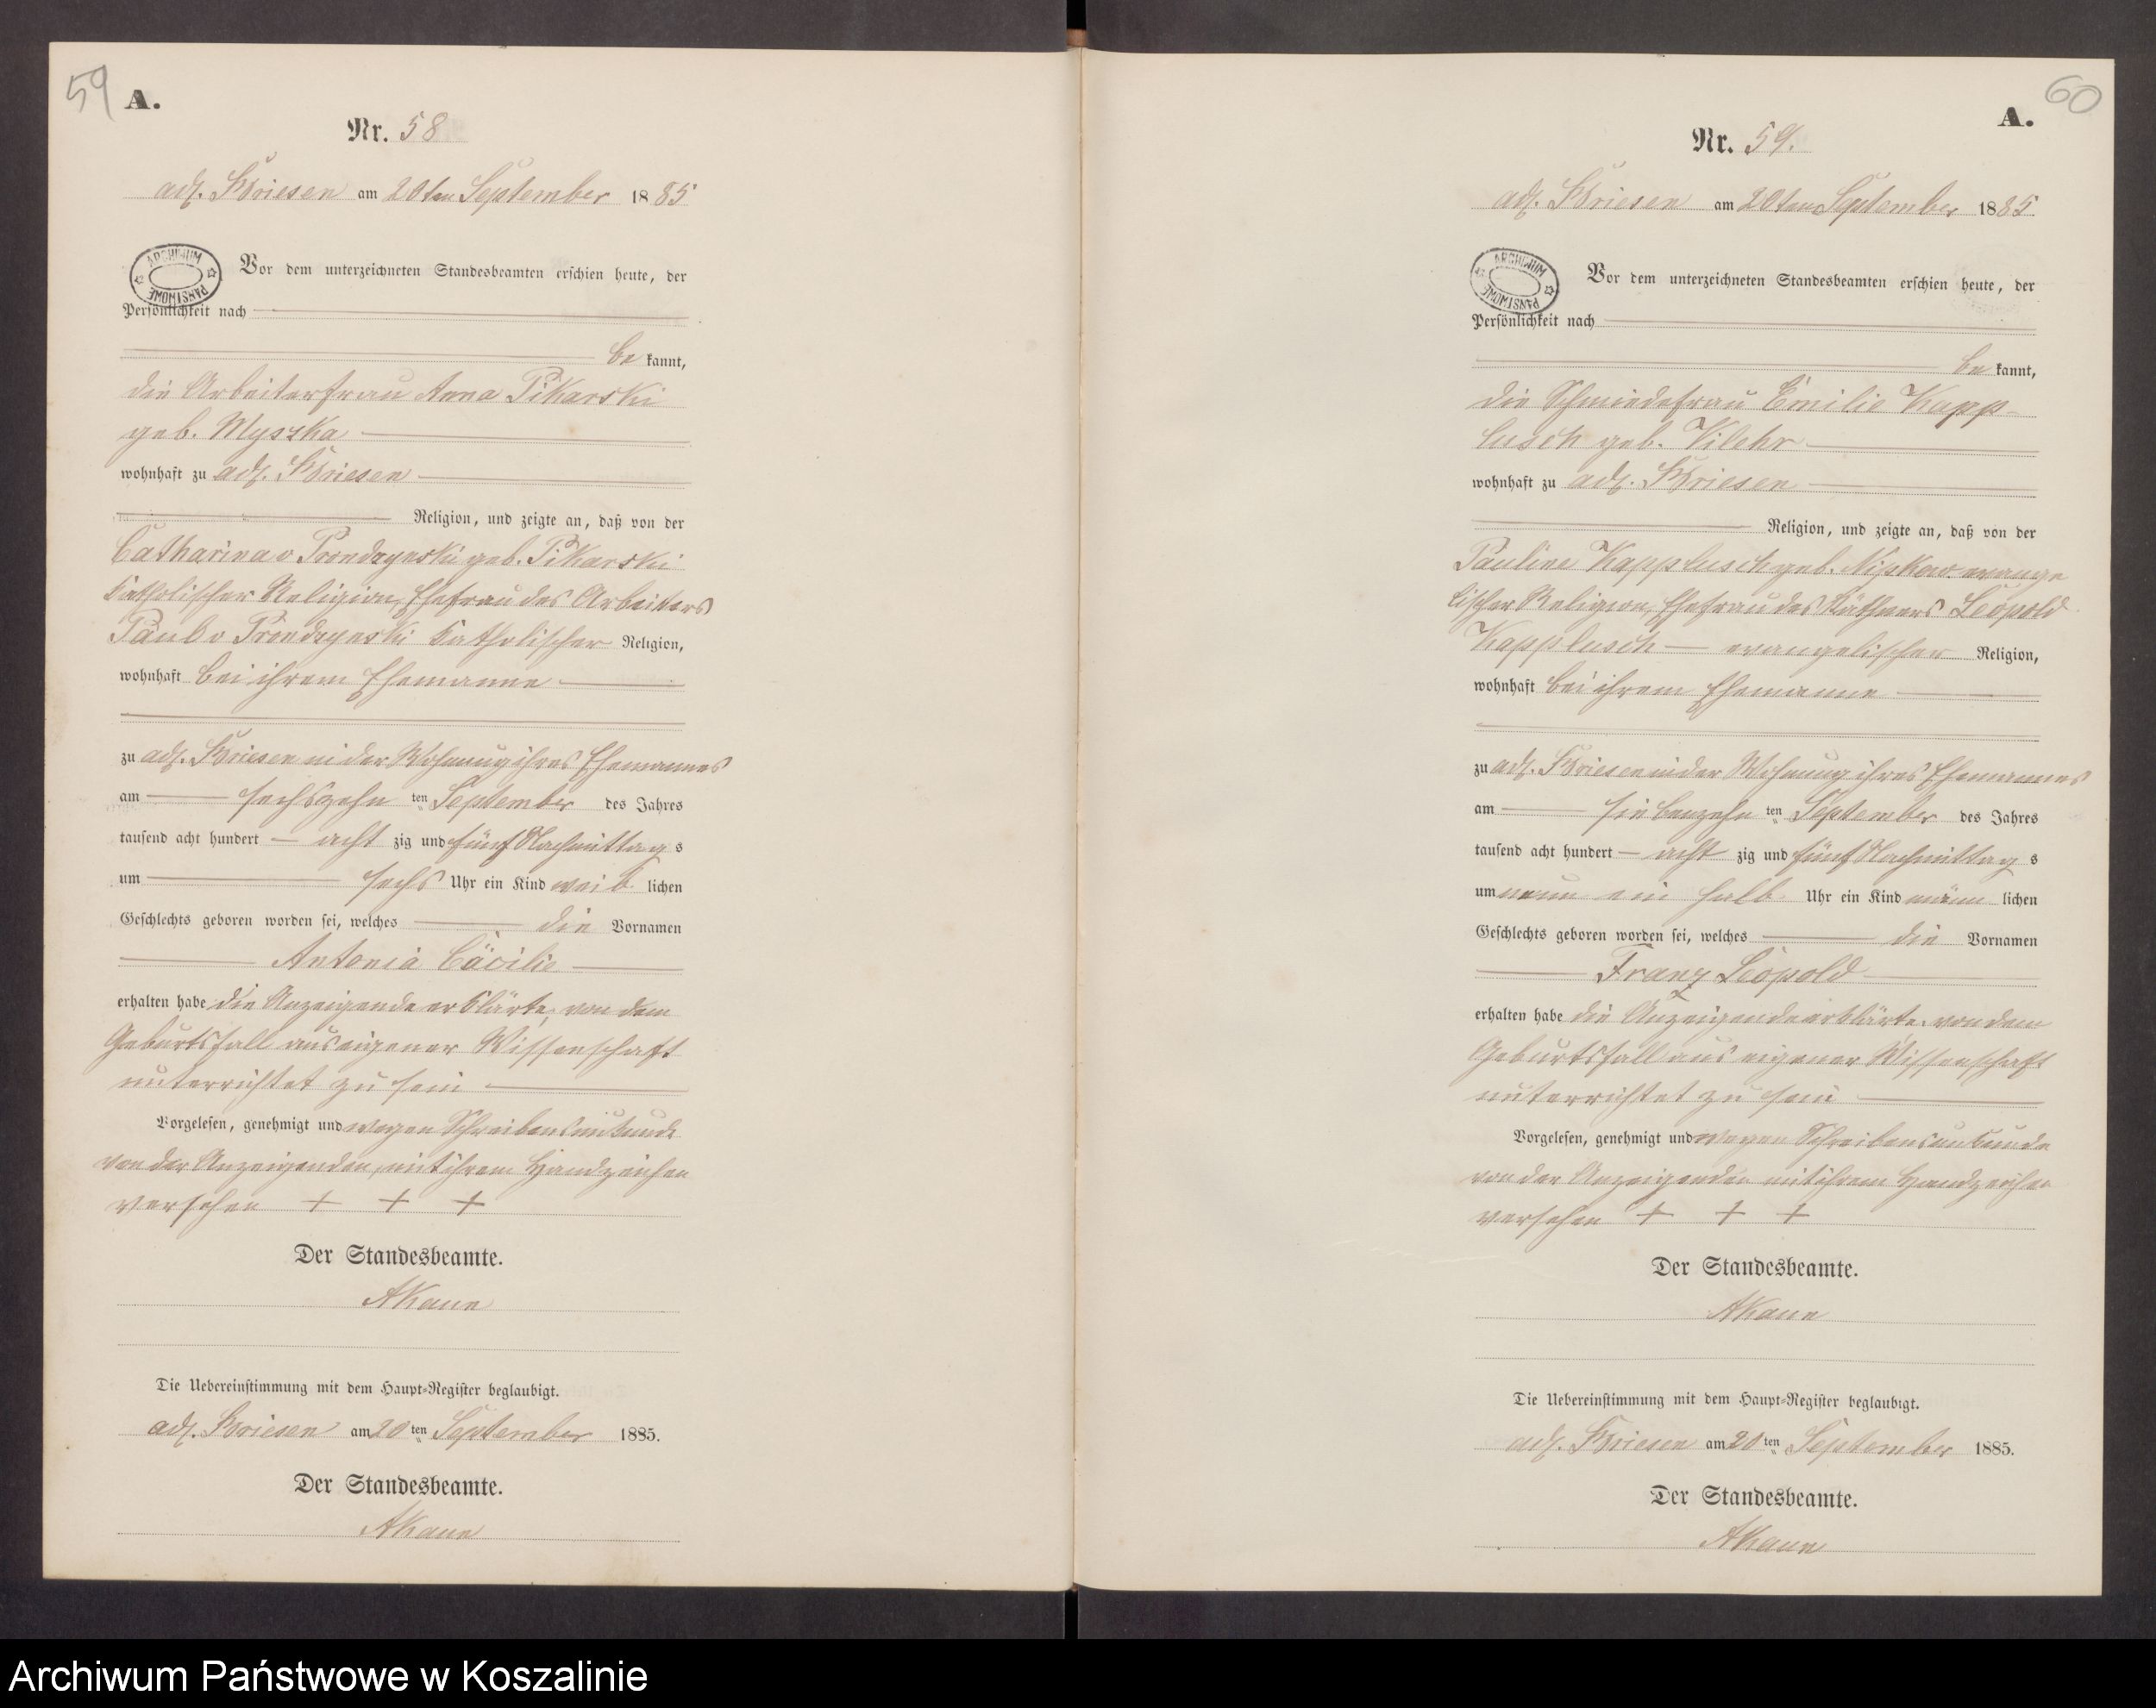 59
A.
Nr. 58
adl. Briesen am 20ten September 1885
ARCHIWUM PAŃSTWOWE
Vor dem unterzeichneten Standesbeamten erschien heute, der
Persönlichkeit nach
be kannt,
die Arbeiterfrau Anna Pikarski
geb. Myszka
wohnhaft zu adl. Briesen
Religion, und zeigte an, daß von der
Catharina v Prondzynski geb. Pikarski
katholischer Religion, Ehefrau des Arbeiters
Paul v Prondzynski katholischer Religion,
wohnhaft bei ihrem Ehemanne
zu adl. Briesen in der Wohnung ihres Ehemannes
am sechszehn ten September des Jahres
tausend acht hundert acht zig und fünf Nachmittag s
um sechs Uhr ein Kind weib lichen
Geschlechts geboren worden sei, welches die Vornamen
Antonia Cäcilie
erhalten habe die Anzeigende erklärte, von dem
Geburtsfall aus eigener Wissenschaft
unterrichtet zu sein
Vorgelesen, genehmigt und wegen Schreibensunkunde
von der Anzeigenden, mit ihrem Handzeichen
versehen + + +
Der Standesbeamte.
AKaun
Die Uebereinstimmung mit dem Haupt-Register beglaubigt.
adl. Briesen am 20 ten September 1885.
Der Standesbeamte.
AKaun
60
A.
Nr. 59.
adl. Briesen am 20ten September 1885
ARCHIWUM PAŃSTWOWE
Vor dem unterzeichneten Standesbeamten erschien heute, der
Persönlichkeit nach
be kannt,
die Schmiedefrau Emilie Kapp-
lusch geb.
wohnhaft zu adl. Briesen
Religion, und zeigte an, daß von der
Pauline Kapplusch geb. Nipkow evange
lischer Religion, Ehefrau des Käthners Leopold
Kapplusch evangelischer Religion,
wohnhaft bei ihrem Ehemanne
zu adl. Briesen in der Wohnung ihres Ehemannes
am siebenzehn ten September des Jahres
tausend acht hundert acht zig und fünf Nachmittag s
um neun ein halb Uhr ein Kind männ lichen
Geschlechts geboren worden sei, welches die Vornamen
Franz Leopold
erhalten habe die Anzeigende erklärte. von dem
Geburtsfall aus eigener Wissenschaft
unterrichtet zu sein
Vorgelesen, genehmigt und wegen Schreibensunkunde
von der Anzeigenden mit ihrem Handzeichen
versehen + + +
Der Standesbeamte.
AKaun
Die Uebereinstimmung mit dem Haupt-Register beglaubigt.
adl. Briesen am 20 ten September 1885.
Der Standesbeamte.
AKaun
Archiwum Państwowe w Koszalinie